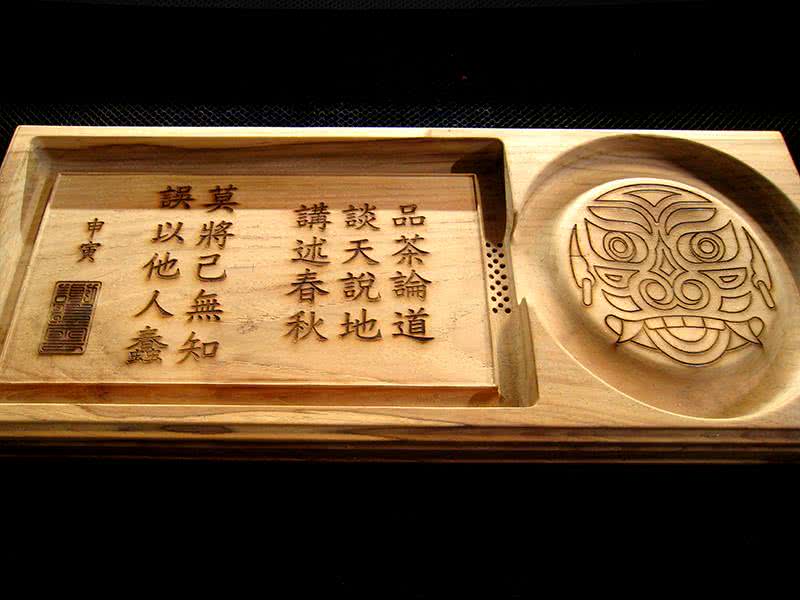 品茶論道
談天說地
講述春秋
莫將己無知
誤以他人蠢
申寅